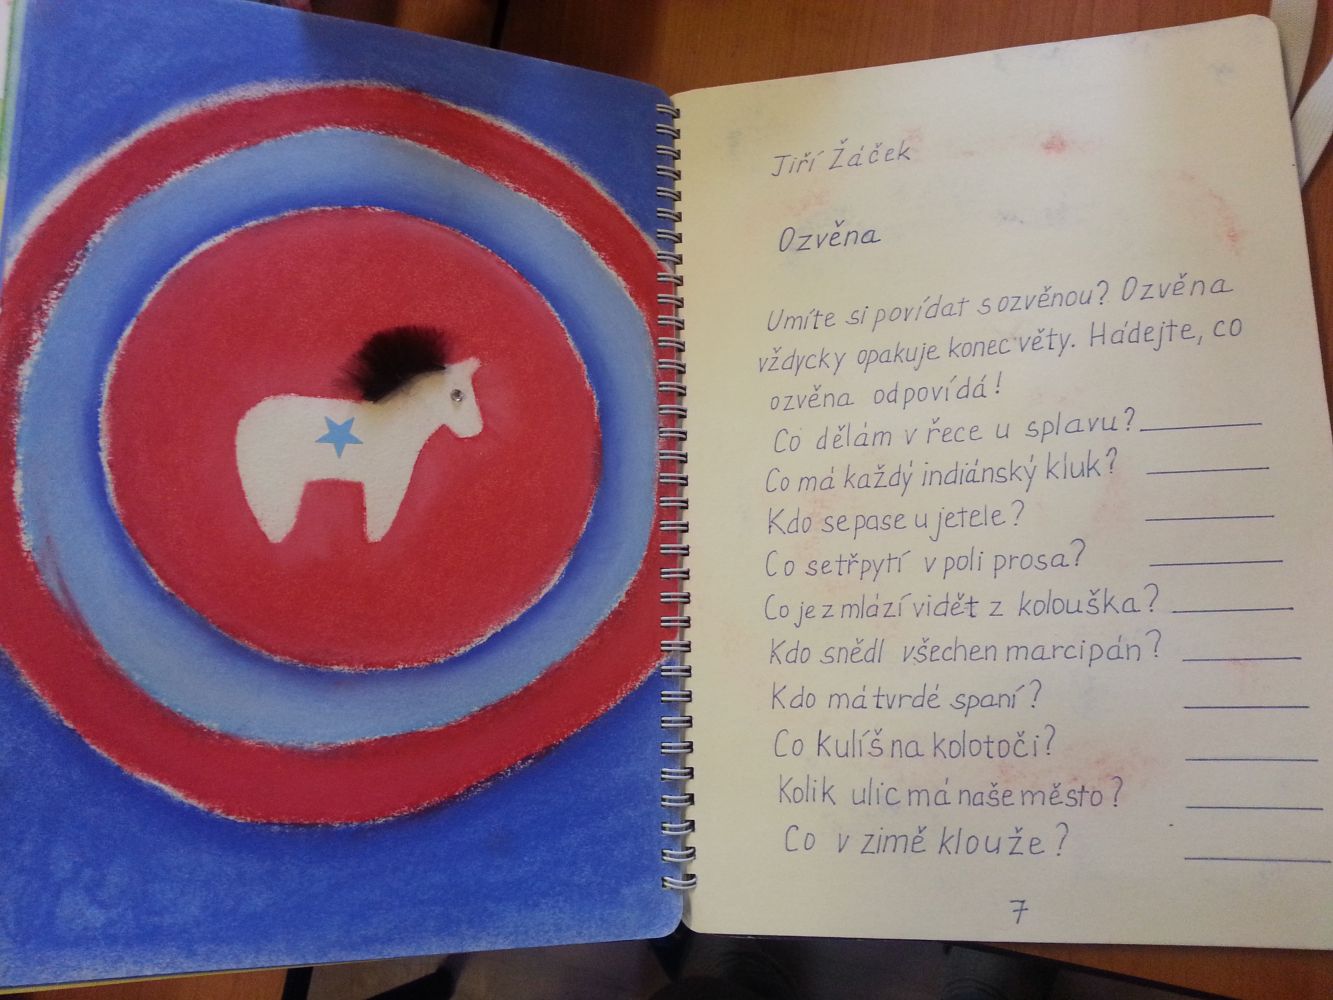 Jiří Žáček
Ozvěna
Umíte si povídat s ozvěnou? Ozvěna
vždycky opakuje konec věty. Hádejte, co
ozvěna odpovídá!
Co dělám v řece u splavu?
Co má každý indiánský kluk?
Kdo se pase u jetele?
Co se třpytí v poli prosa?
Co je z mlází vidět z kolouška?
Kdo snědl všechen marcipán?
Kdo má tvrdé spaní?
Co kulíš na kolotoči?
Kolik ulic má naše město?
Co v zimě klouže?
7